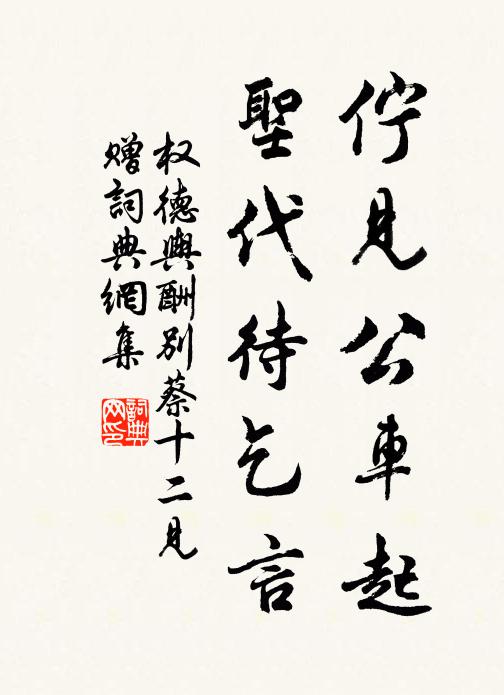 佇見公車起
聖代待乞言
权德輿酬別蔡十二見
贈詞典網集
詞典
网印